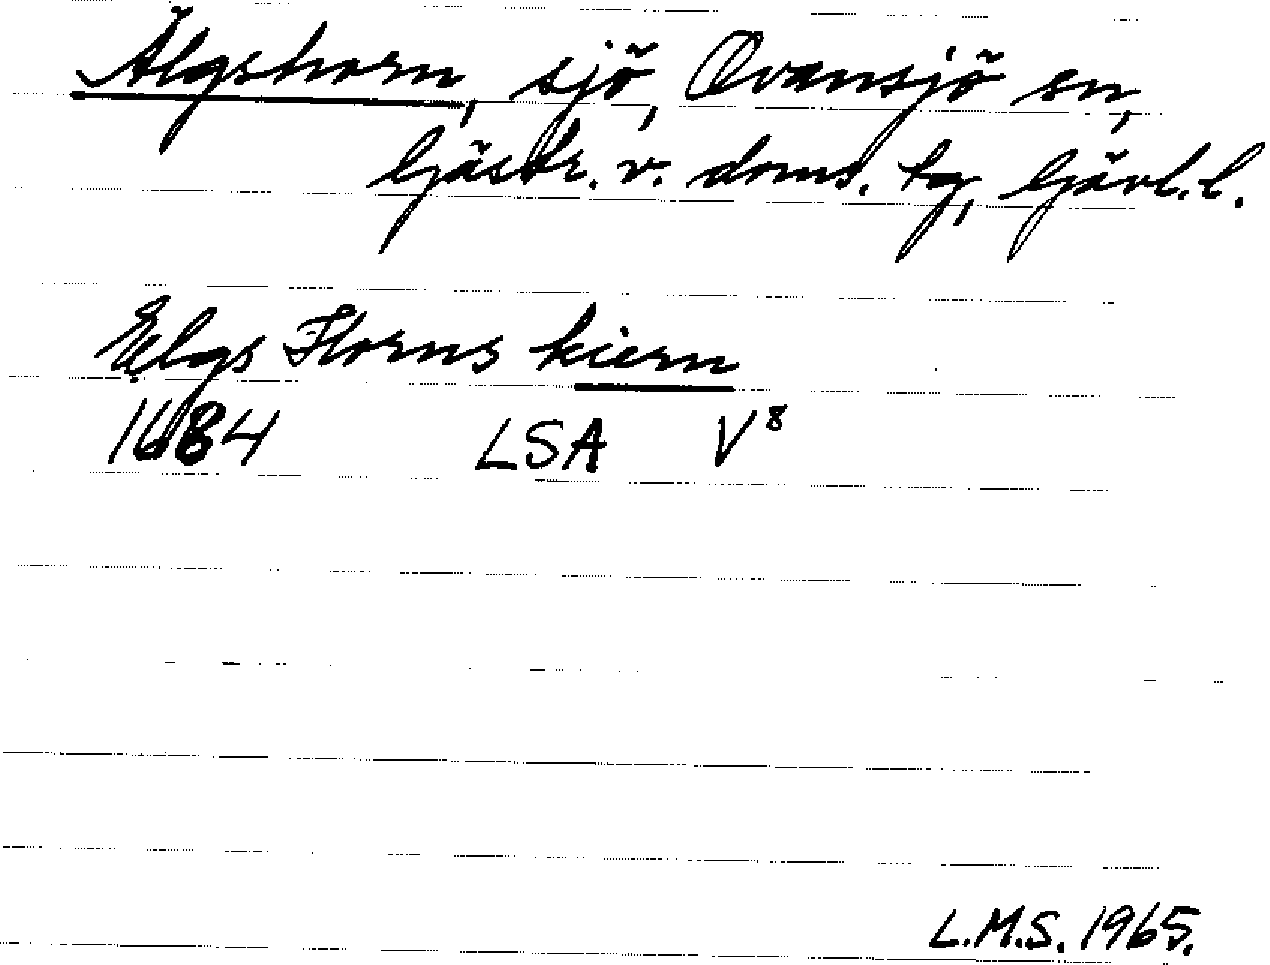 Älgshorn, sjö, Ovansjö sn,
Gästr. v. doms. tg, Gävl. l.
Elgs Horns kiern
1684 LSA V8
L.M.S. 1965.